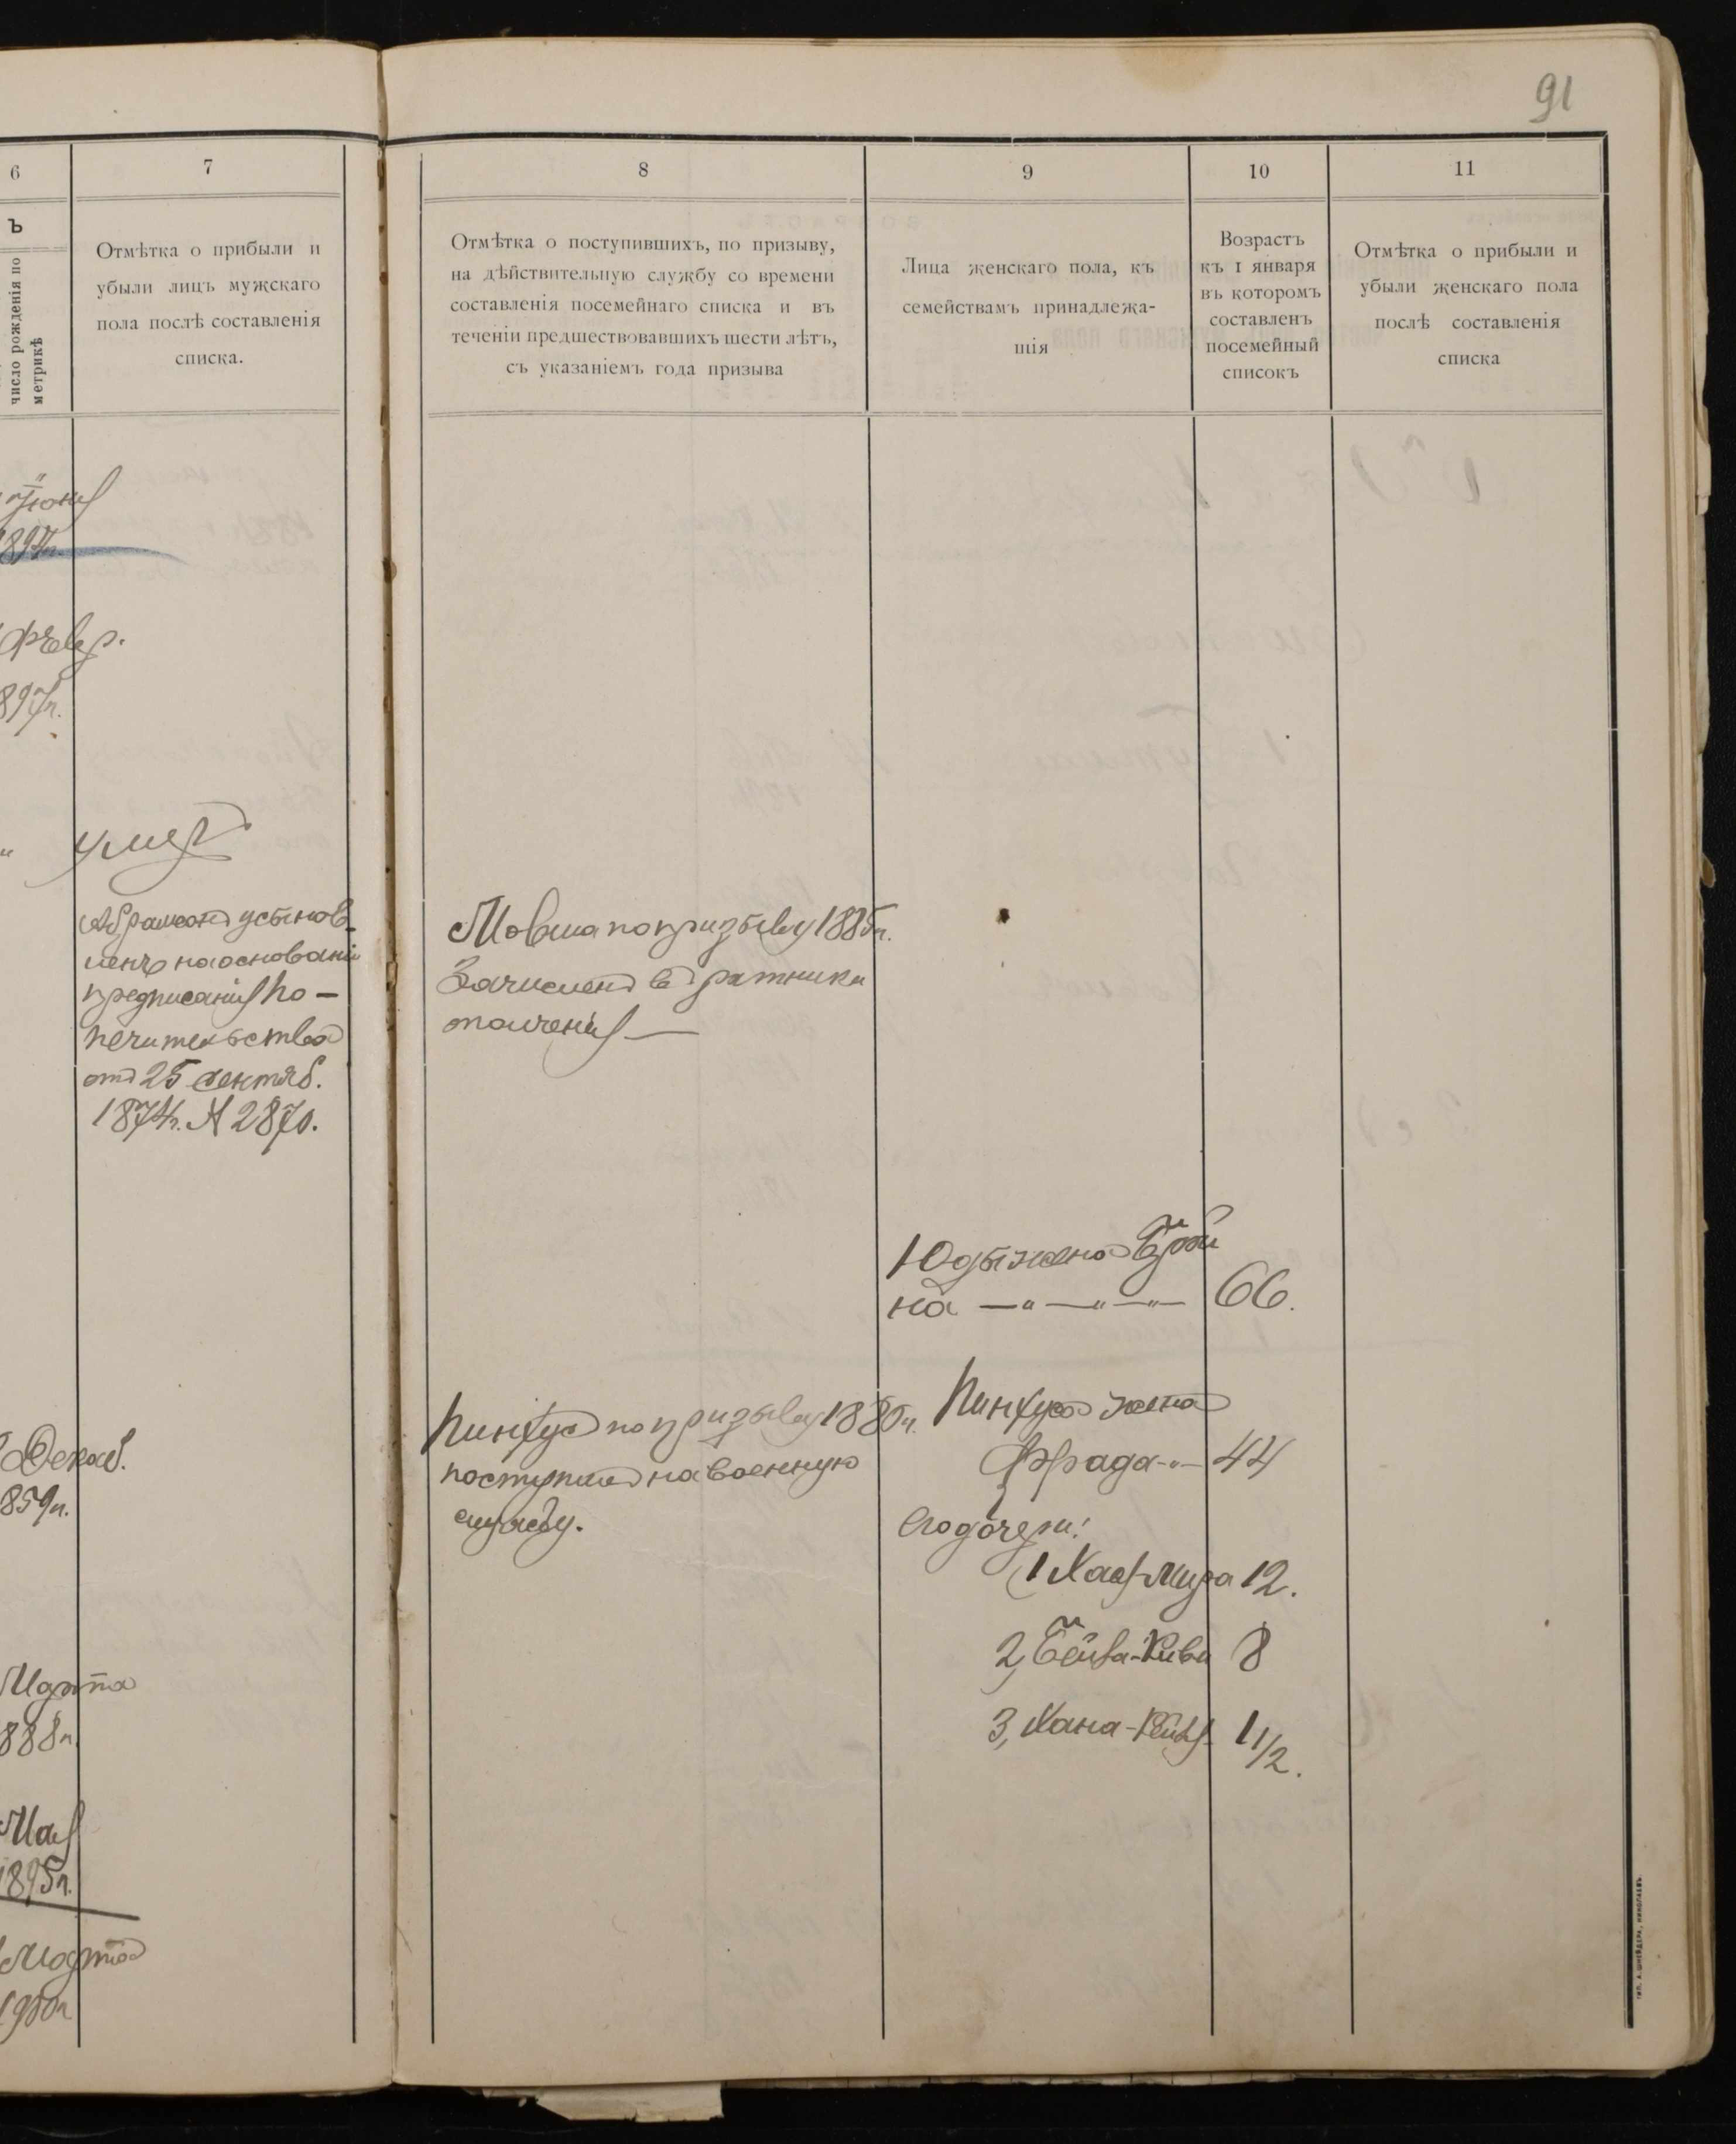 91
6
7
8
9
10
11
Ъ
число рожденія по
метрикѣ
Отмѣтка о прибыли и
убыли лицъ мужскаго
пола послѣ составленія
списка.
Отмѣтка о поступившихъ, по призыву,
на дѣйствительную службу со времени
составленія посемейнаго списка и въ
теченіи предшествовавшихъ шести лѣтъ,
съ указаніемъ года призыва
Лица женскаго пола, къ
семействамъ принадлежа-
щія
Возрастъ
къ 1 января
въ которомъ
составленъ
посемейный
списокъ
Отмѣтка о прибыли и
убыли женскаго пола
послѣ составленія
списка
Іюня
897г.
Февр.
897г.
умеръ
Абрамомъ усынов-
ленъ на основаніи
предписанія По-
печительства
отъ 25 сентяб.
1874г. № 2870.
Мовша по призыву 1885г.
зачисленъ въ ратники
ополченія —
Юды жена
на — " — " — " — 66.
Декаб.
859г.
Пинхусъ по призыву 1880г.
поступилъ на военную
службу.
Пинхуса жена
Фрада - " - 44
Его дочери:
1 Хая-Мира 12.
2, Бейла-Рива 8
3, Хана-Рейзя 1 1/2.
Марта
888г.
Мая
1895г.
Марта
1900г
ТИП. А. ШНЕЙДЕРА, НИКОЛАЕВЪ.